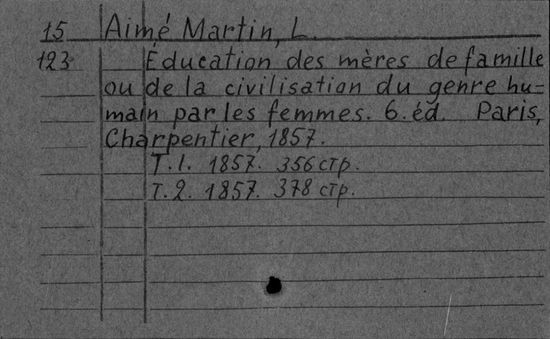 15 Aimé Martin, L.
123 Éducation des mères de famille
ou de la civilisation du genre hu=
main par les femmes. 6. éd. Paris,
Charpentier, 1857.
T. 1. 1857. 356 стр.
T. 2. 1857. 378 стр.